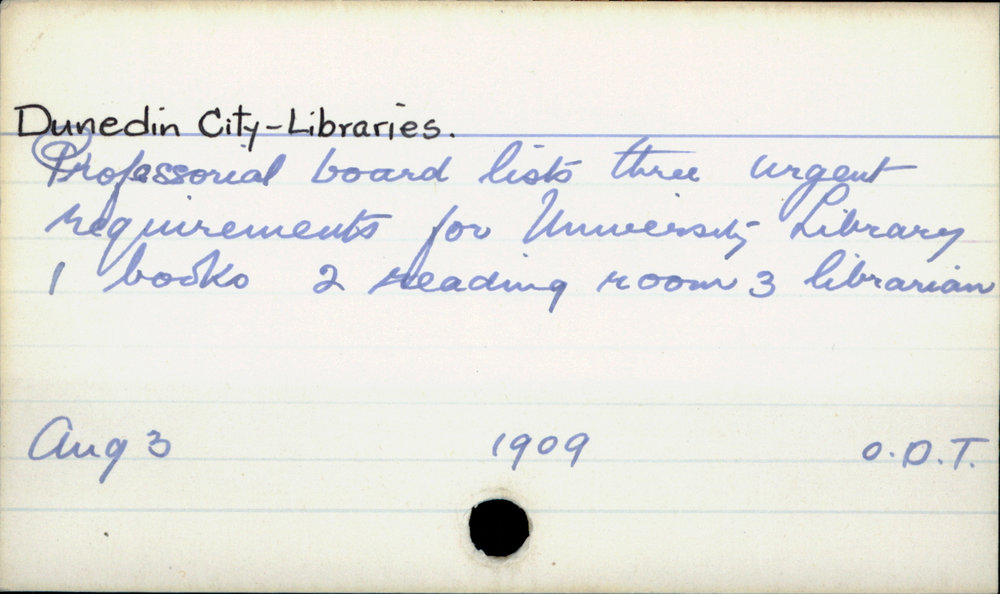 Dunedin City-Libraries.
Professorial board lists three urgent
requirements for University Library
1 books 2 reading room 3 librarian
Aug 3 1909 O.D.T.